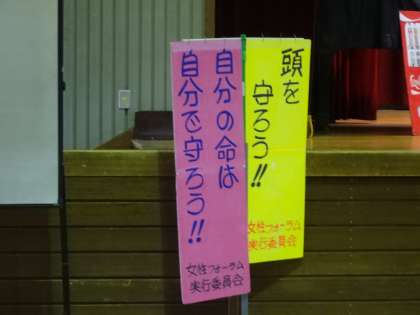 頭を
守ろう!!
女性フォーラム
実行委員会
自分の命は
自分で守ろう!!
女性フォーラム
実行委員会